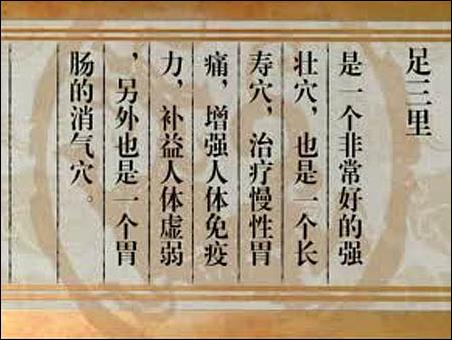 足三里
是一个非常好的强
壮穴，也是一个长
寿穴，治疗慢性胃
痛，增强人体免疫
力，补益人体虚弱
，另外也是一个胃
肠的消气穴。